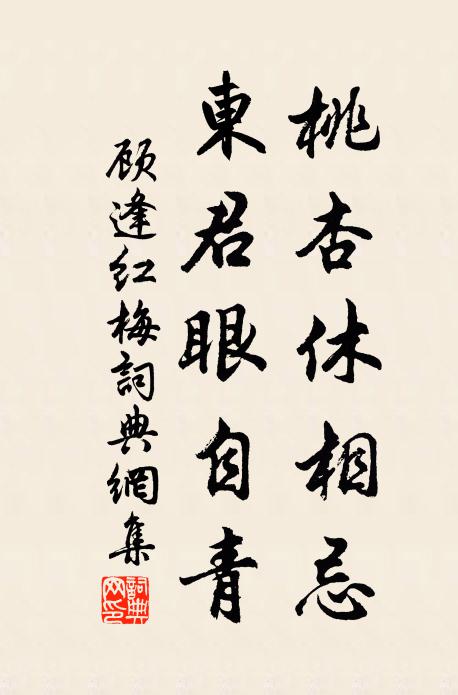 桃杏休相忌
東君眼自青
顾逢红梅詞典網集
詞典網印